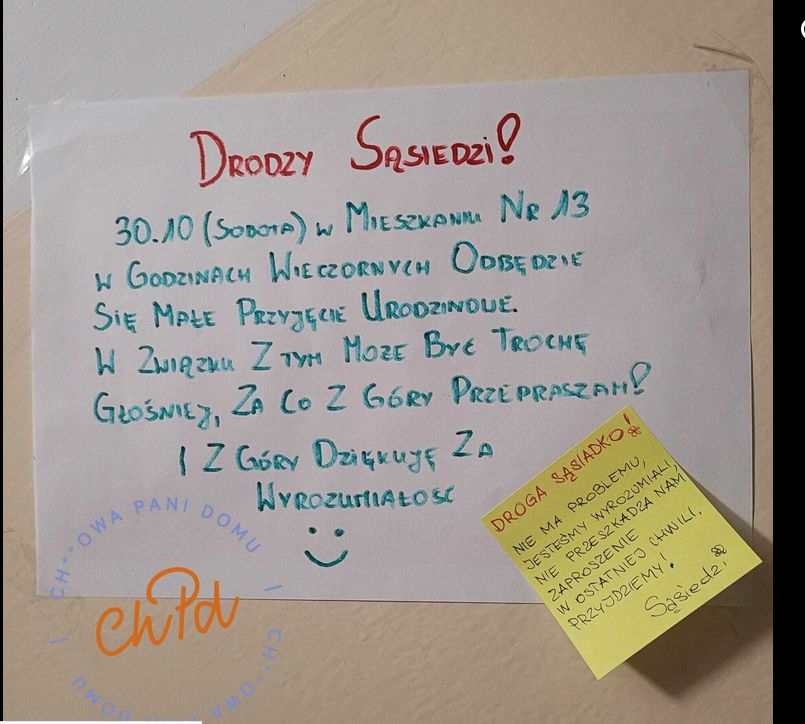 DRODZY SĄSIEDZI!
30.10 (SOBOTA) W MIESZKANIU NR 13
W GODZINACH WIECZORNYCH ODBĘDZIE
SIĘ MAŁE PRZYJĘCIE URODZINOWE.
W ZWIĄZKU Z TYM MOŻE BYĆ TROCHĘ
GŁOŚNIEJ, ZA CO Z GÓRY PRZEPRASZAM!
I Z GÓRY DZIĘKUJĘ ZA
WYROZUMIAŁOŚĆ
DROGA SĄSIADKO!
NIE MA PROBLEMU,
JESTEŚMY WYROZUMIALI,
NIE PRZESZKADZA NAM
ZAPROSZENIE
W OSTATNIEJ CHWILI.
PRZYJDZIEMY!
Sąsiedzi
CH**OWA PANI DOMU | CH**OWA PANI DOMU |
ChPd